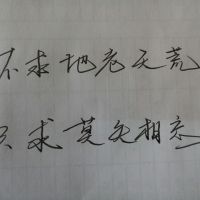 不求地老天荒
只求莫失相忘